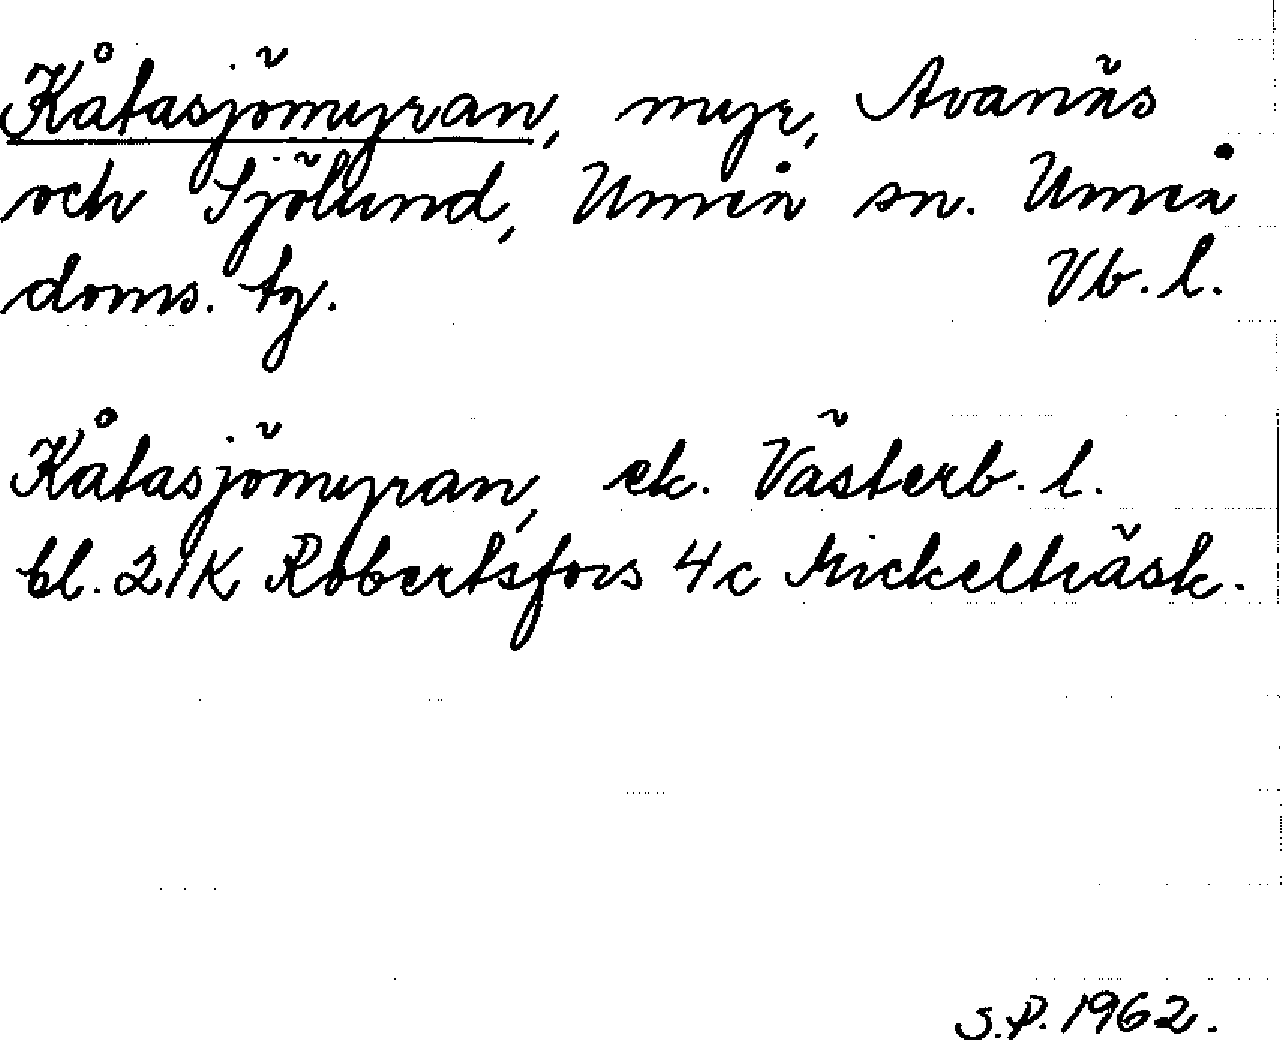 Kåtasjömyran, myr, Avanäs
och Sjölund, Umeå sn. Umeå
doms. tg. Vb. l.
Kåtasjömyran, ek. Västerb. l.
bl. 21K Robertsfors 4c Mickelträsk.
S.P. 1962.